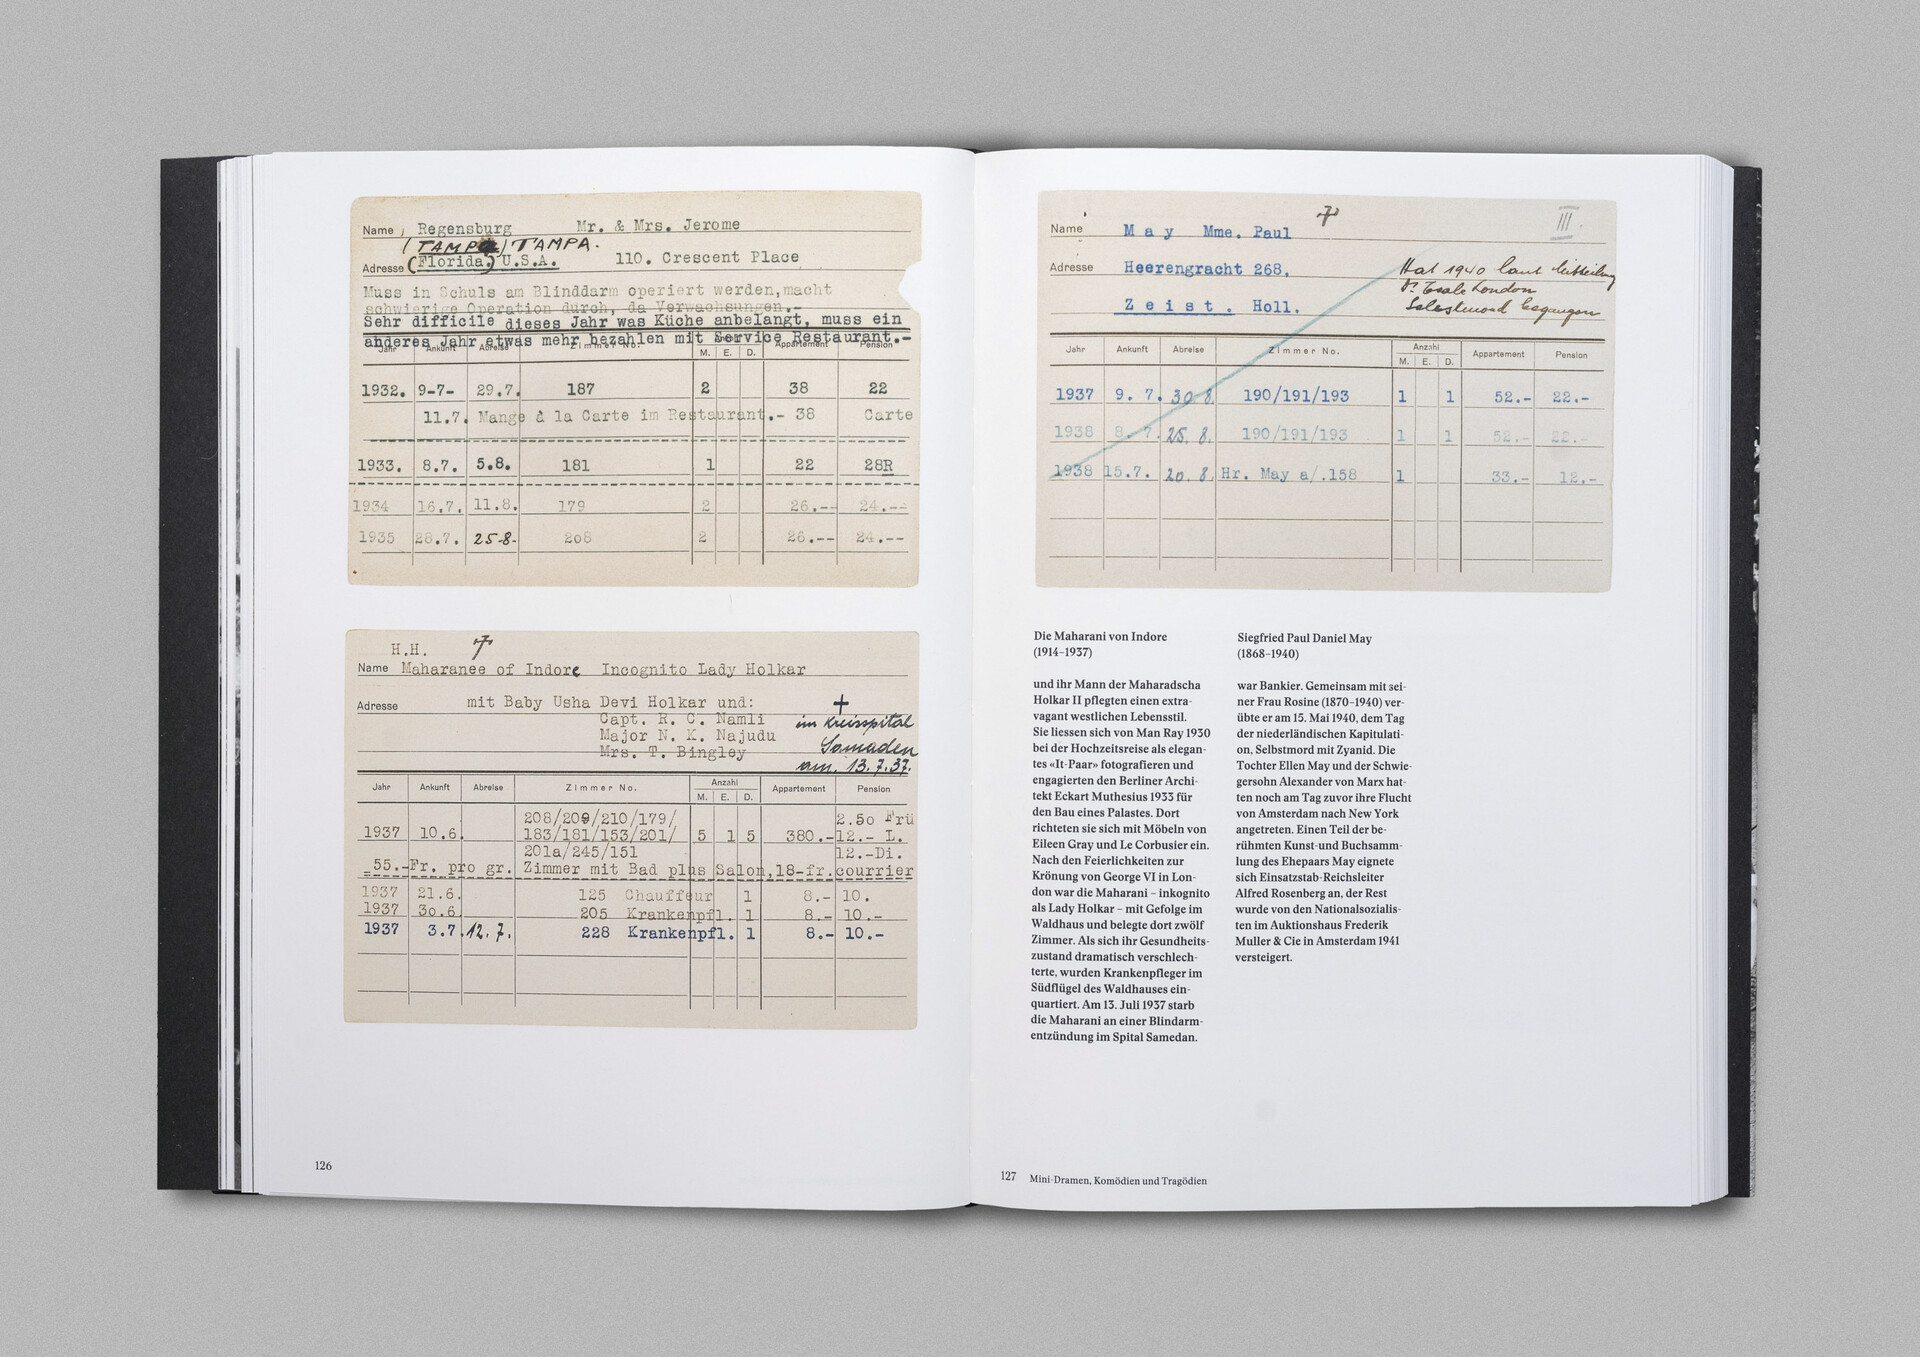 Name, Regensburg Mr. & Mrs. Jerome
(TAMPA) TAMPA.
Adresse (Florida.) U.S.A. 110. Crescent Place
Muss in Schuls am Blinddarm operiert werden,macht
schwierige Operation durch, da Verwachsungen.-
Sehr difficile dieses Jahr was Küche anbelangt, muss ein
anderes Jahr etwas mehr bezahlen mit Service Restaurant.-
Jahr Ankunft Abreise Zimmer No. Anzahl Appartement Pension
M. E. D.
1932. 9-7- 29.7. 187 2 38 22
11.7. Mange à la Carte im Restaurant.- 38 Carte
1933. 8.7. 5.8. 181 1 22 28R
1934 16.7. 11.8. 179 2 26.-- 24.--
1935 28.7. 25-8- 208 2 26.-- 24.--
H.H. 7
Name Maharanee of Indore Incognito Lady Holkar
Adresse mit Baby Usha Devi Holkar und:
Capt. R. C. Namli
Major N. K. Najudu
Mrs. T. Bingley
im Kreisspital
Samaden
am. 13.7.37.
Jahr Ankunft Abreise Zimmer No. Anzahl Appartement Pension
M. E. D.
208/209/210/179/ 2.50 Frü
1937 10.6. 183/181/153/201/ 5 1 5 380.- 12.- L.
201a/245/151 12.-Di.
55.-Fr. pro gr. Zimmer mit Bad plus Salon,18-fr.courrier
1937 21.6. 125 Chauffeur 1 8.- 10.
1937 30.6. 205 Krankenpfl. 1 8.- 10.-
1937 3.7. 12.7. 228 Krankenpfl. 1 8.- 10.-
126
7 III.
Name May Mme. Paul
Adresse Heerengracht 268.
Zeist. Holl.
Hat 1940 laut Mitteilung
London
Selbstmord begangen
Jahr Ankunft Abreise Zimmer No. Anzahl Appartement Pension
M. E. D.
1937 9. 7. 30.8. 190/191/193 1 1 52.- 22.-
1938 8. 7. 25.8. 190/191/193 1 1 52.- 22.-
1938 15.7. 20.8. Hr. May a/.158 1 33.- 12.-
Die Maharani von Indore
(1914–1937)
und ihr Mann der Maharadscha
Holkar II pflegten einen extra-
vagant westlichen Lebensstil.
Sie liessen sich von Man Ray 1930
bei der Hochzeitsreise als elegan-
tes «It-Paar» fotografieren und
engagierten den Berliner Archi-
tekt Eckart Muthesius 1933 für
den Bau eines Palastes. Dort
richteten sie sich mit Möbeln von
Eileen Gray und Le Corbusier ein.
Nach den Feierlichkeiten zur
Krönung von George VI in Lon-
don war die Maharani – inkognito
als Lady Holkar – mit Gefolge im
Waldhaus und belegte dort zwölf
Zimmer. Als sich ihr Gesundheits-
zustand dramatisch verschlech-
terte, wurden Krankenpfleger im
Südflügel des Waldhauses ein-
quartiert. Am 13. Juli 1937 starb
die Maharani an einer Blindarm-
entzündung im Spital Samedan.
Siegfried Paul Daniel May
(1868–1940)
war Bankier. Gemeinsam mit sei-
ner Frau Rosine (1870–1940) ver-
übte er am 15. Mai 1940, dem Tag
der niederländischen Kapitulati-
on, Selbstmord mit Zyanid. Die
Tochter Ellen May und der Schwie-
gersohn Alexander von Marx hat-
ten noch am Tag zuvor ihre Flucht
von Amsterdam nach New York
angetreten. Einen Teil der be-
rühmten Kunst-und Buchsamm-
lung des Ehepaars May eignete
sich Einsatzstab-Reichsleiter
Alfred Rosenberg an, der Rest
wurde von den Nationalsozialis-
ten im Auktionshaus Frederik
Muller & Cie in Amsterdam 1941
versteigert.
127 Mini-Dramen, Komödien und Tragödien